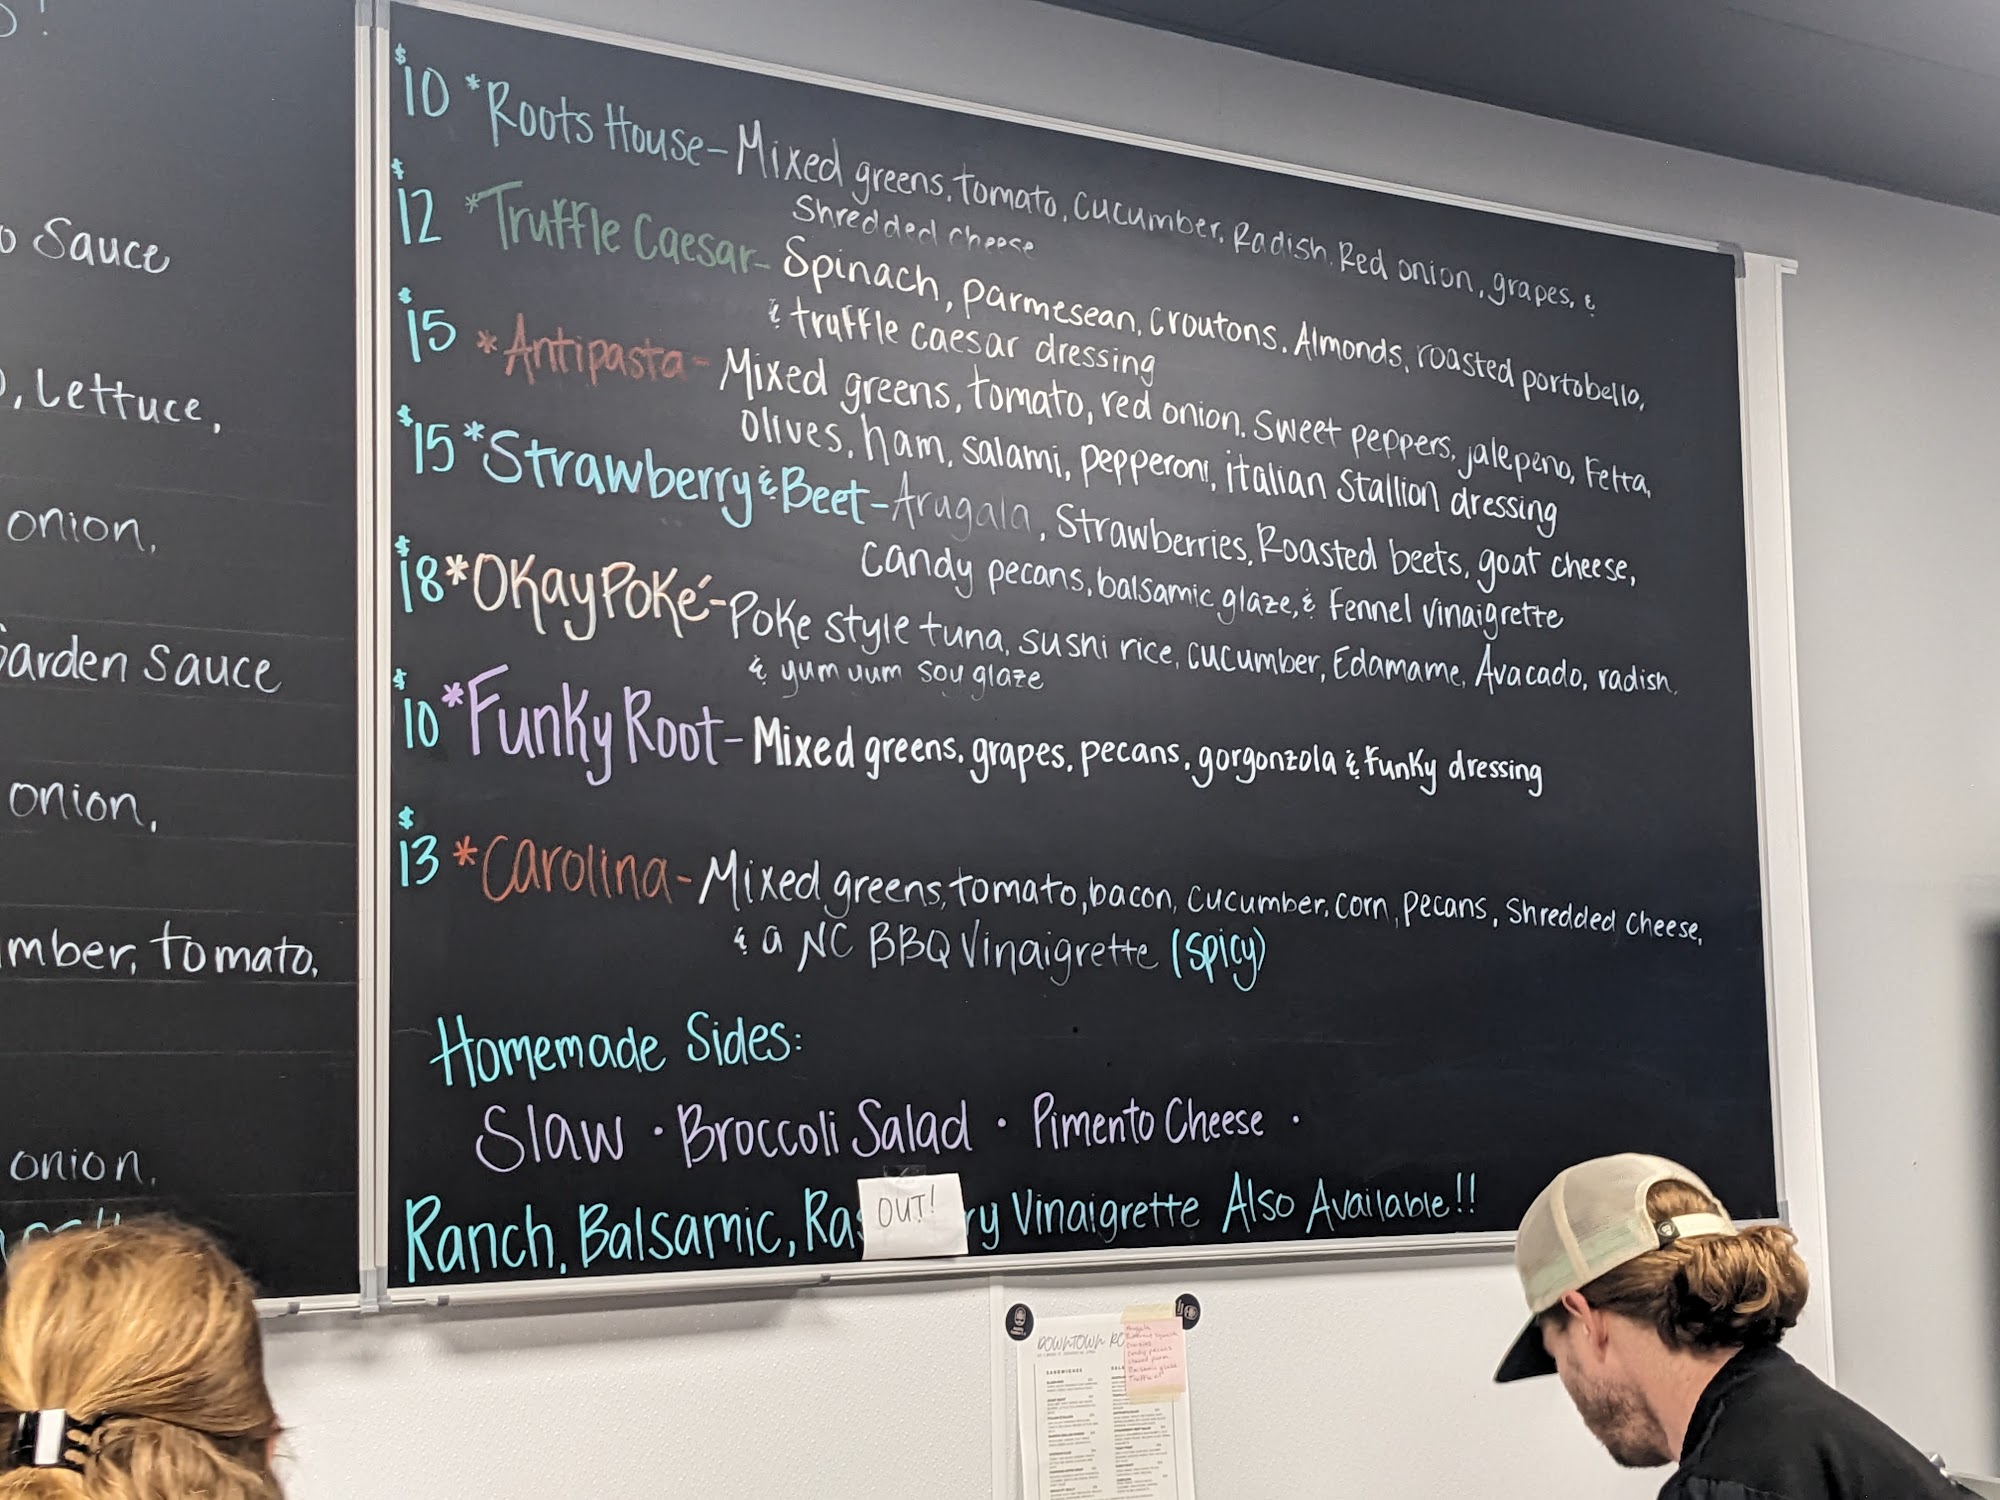 o Sauce
, Lettuce,
onion,
Garden Sauce
onion,
mber, tomato,
onion,
$10 *Roots House - Mixed greens, tomato, cucumber, Radish, Red onion, grapes, &
Shredded cheese
$12 *Truffle Caesar - Spinach, parmesean, croutons, Almonds, roasted portobello,
& truffle caesar dressing
$15 *Antipasta - Mixed greens, tomato, red onion, sweet peppers, jalepeno, Fetta,
Olives, ham, salami, pepperoni, italian Stallion dressing
$15 *Strawberry & Beet - Arugala, Strawberries, Roasted beets, goat cheese,
candy pecans, balsamic glaze, & Fennel vinaigrette
$18 *Okay Poké - Poke style tuna, sushi rice, cucumber, Edamame, Avacado, radish,
& yum yum soy glaze
$10 *Funky Root - Mixed greens, grapes, pecans, gorgonzola & funky dressing
$13 *Carolina - Mixed greens, tomato, bacon, cucumber, corn, pecans, Shredded cheese,
& a NC BBQ Vinaigrette (spicy)
Homemade Sides:
Slaw · Broccoli Salad · Pimento Cheese ·
Ranch, Balsamic, Ras OUT! ry Vinaigrette Also Available!!
DOWNTOWN RO
SANDWICHES